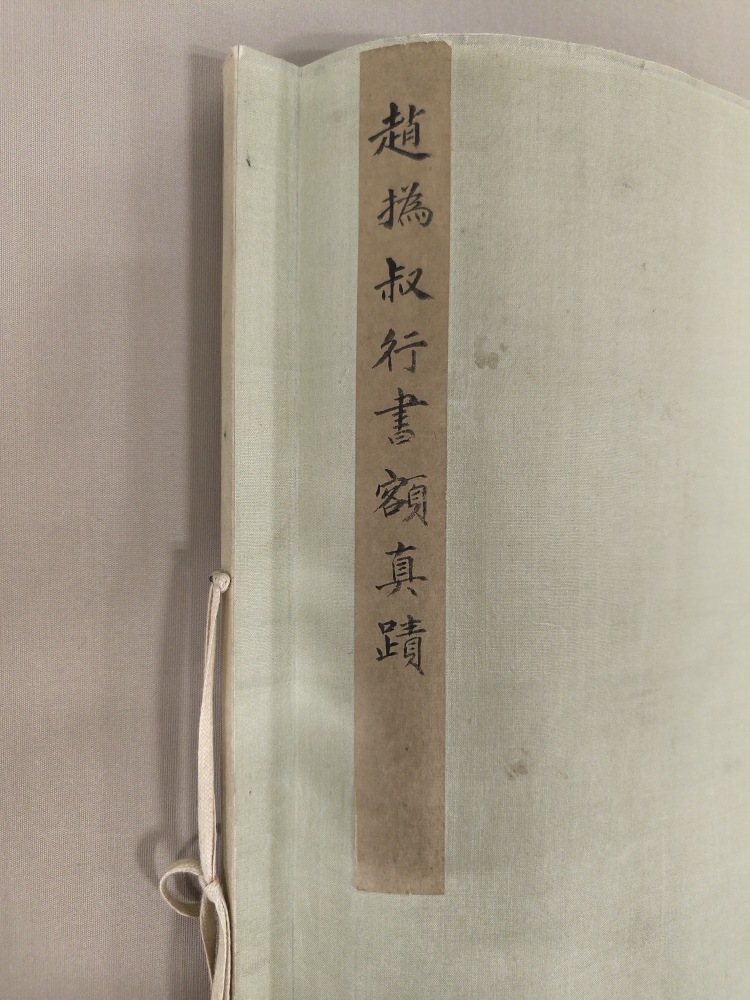 趙撝叔行書額真蹟